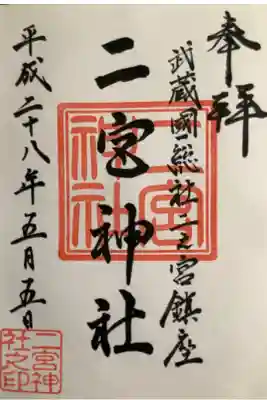 奉拝
武蔵國総社二之宮鎮座
二宮神社
平成二十八年五月五日
二宮神社
二宮神社之印